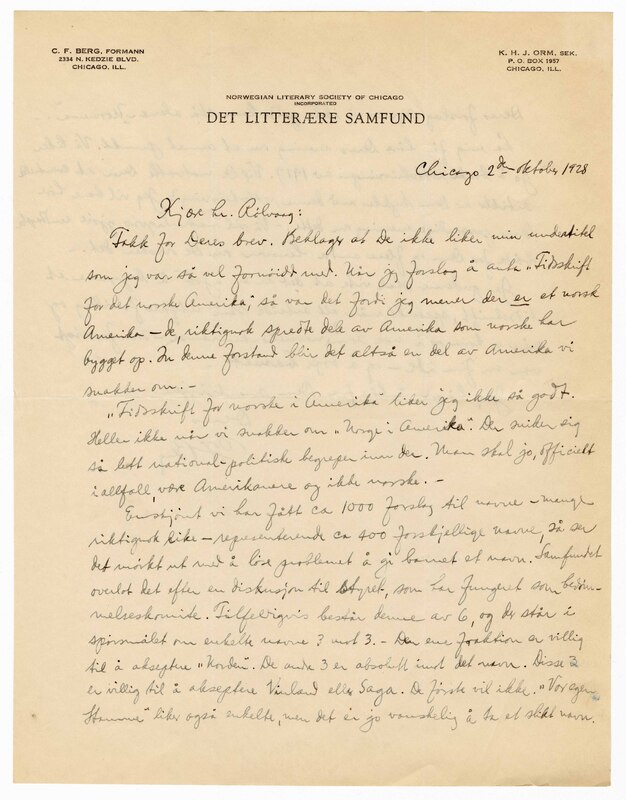 C. F. BERG, FORMANN
2334 N. KEDZIE BLVD.
CHICAGO, ILL.
K. H. J. ORM, SEK.
P. O. BOX 1957
CHICAGO, ILL.
NORWEGIAN LITERARY SOCIETY OF CHICAGO
INCORPORATED
DET LITTERÆRE SAMFUND
Chicago 2de oktober 1928
Kjære hr. Rölvaag:
Takk for Deres brev. Beklager at De ikke liker min undertitel
som jeg var så vel fornöidd med. Når jeg forslog å anta "Tidsskrift
for det norske Amerika", så var det fordi jeg mener der er et norsk
Amerika – de, riktignok spredte dele av Amerika som norske har
bygget op. In denne forstand blir det altså en del av Amerika vi
snakker om. –
"Tidsskrift for norske i Amerika" liker jeg ikke så godt.
Heller ikke når vi snakker om "Norge i Amerika". Der sniker sig
så lett national-politisk begreper inn der. Man skal jo, officielt
i allfall, være Amerikanere og ikke norske. –
Enskjönt vi har fått ca 1000 forslag til navne – mange
riktignok like – representerende ca 400 forskjellige navne, så ser
det mörkt ut med å löse problemet å gi barnet et navn. Samfundet
overlot det efter en diskusjon til styret, som har fungeret som bedöm-
melseskomite. Tilfeldigvis består denne av 6, og der står i
spörsmålet om enkelte navne 3 mot 3. – Den ene fraktion er villig
til å akseptere "Norden". De andre 3 er absolutt imot det navn. Disse 3
er villig til å akseptere Vinland eller Saga. De förste vil ikke. "Vor egen
Stamme" liker også enkelte, men det er jo vanskelig å ta et slikt navn.